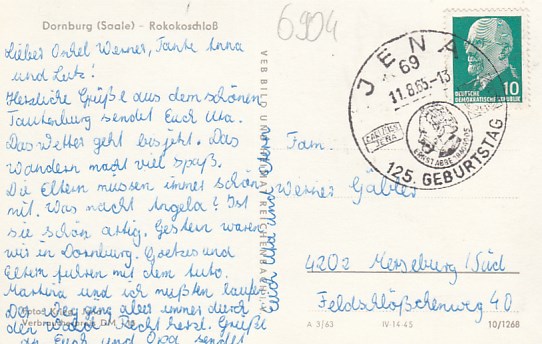 6904
Dornburg (Saale) - Rokokoschloß
Lieber Onkel Werner, Tante Anna
und Lutz!
Herzliche Grüße aus dem schönen
Tautenburg sendet Euch Uta.
Das Wetter geht bis jetzt. Das
Wandern macht viel Spaß.
Die Eltern müssen immer schön
mit. Was macht Angela? Ist
sie schön artig. Gestern waren
wir in Dornburg. Goetzes und
Eltern fuhren mit dem Auto.
Martina und ich mußten laufen
Der Weg ging aber immer durch
den Wald. Recht herzl. Grüße
an Euch und Opa sendet
VEB BILD UND HEIMAT REICHENBACH I. V.
Euch Uta und Eltern
JENA
69
11.8.65-13
CARL ZEISS
JENA
ERNST ABBE
125. GEBURTSTAG
10
DEUTSCHE
DEMOKRATISCHE REPUBLIK
Fam.
Werner Gäbler
4202 Merseburg/Süd
Feldschlößchenweg 40
A 3/63 IV-14-45 10/1268